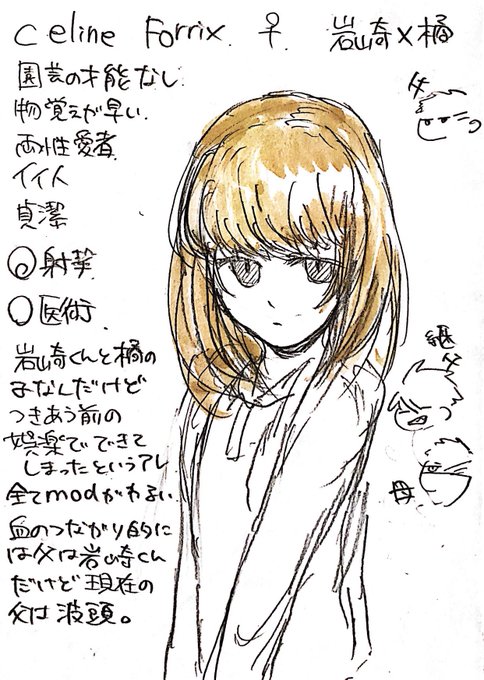 Celine Forrix. ♀. 岩崎×橘
園芸の才能なし
物覚えが早い
両性愛者
イイ人
貞潔
◎射撃
○医術
岩崎くんと橘の
子なんだけど
つきあう前の
娯楽でできて
しまったというアレ
全てmodがわるい
血のつながり的に
は父は岩崎くん
だけど現在の
父は波頭。
父
継父
母